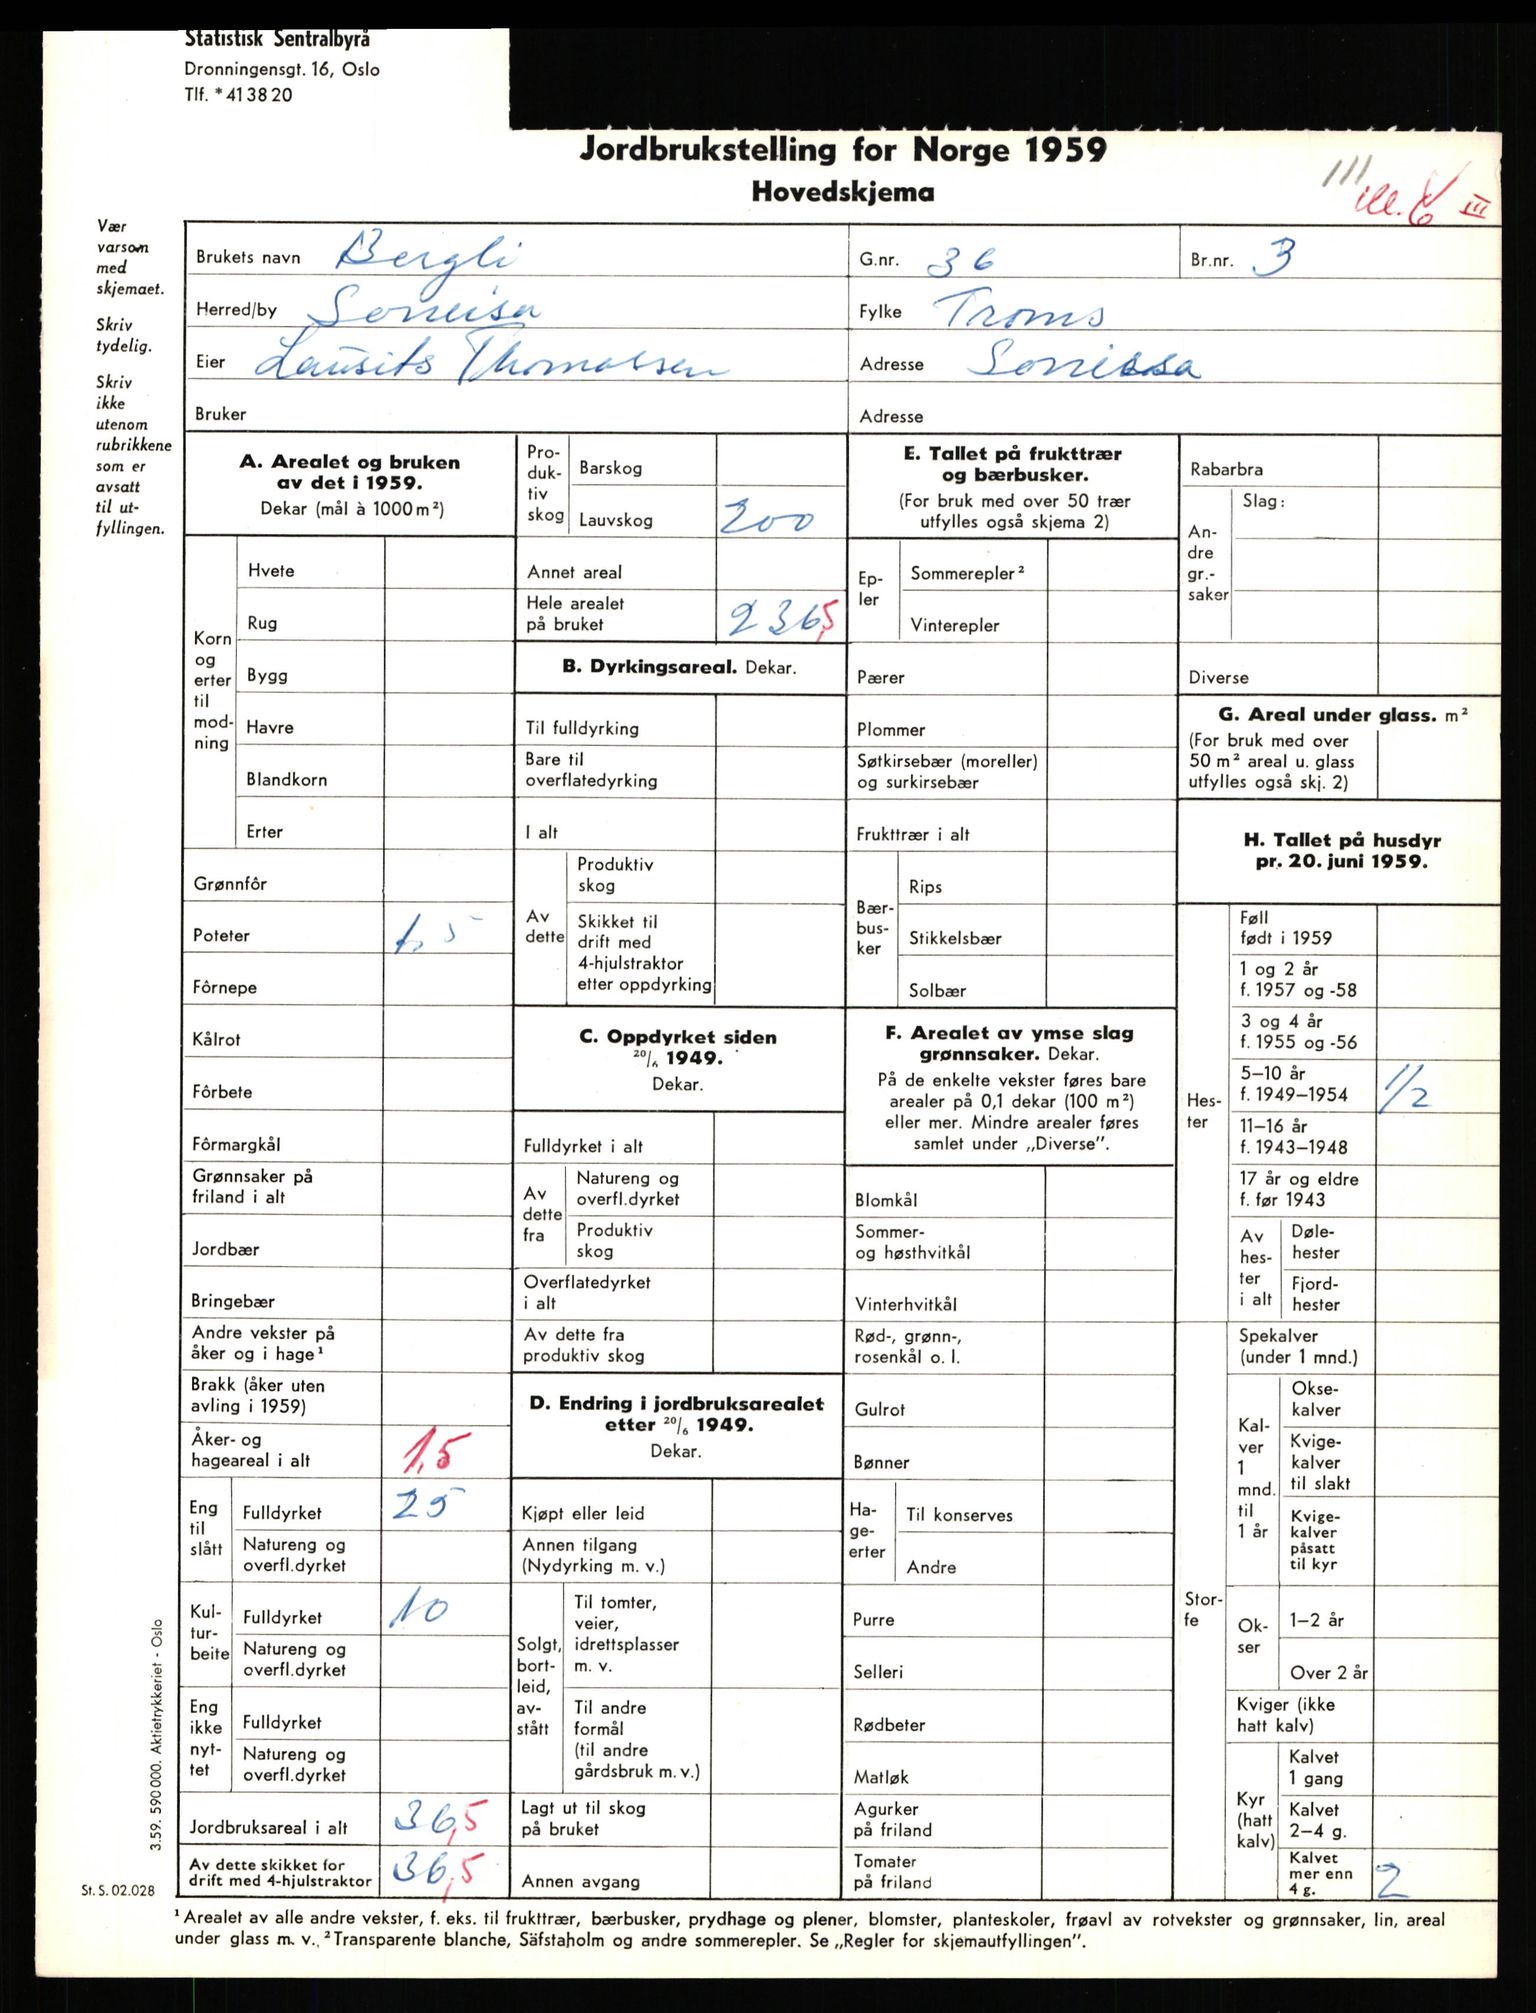 Statistisk Sentralbyrå
Dronningensgt. 16, Oslo
Tlf. * 41 38 20
Jordbrukstelling for Norge 1959
Hovedskjema
III
Vær
varsom
med
skjemaet.
Skriv
tydelig.
Skriv
ikke
utenom
rubrikkene
som er
avsatt
til ut-
fyllingen.
Brukets navn Bergli G.nr. 36 Br.nr. 3
Herred/by Fylke Troms
Eier Lausits Thomassen Adresse
Bruker Adresse
A. Arealet og bruken
av det i 1959.
Dekar (mål à 1000 m²)
Korn
og
erter
til
mod-
ning
Hvete
Rug
Bygg
Havre
Blandkorn
Erter
Grønnfôr
Poteter 1,5
Fôrnepe
Kålrot
Fôrbete
Fôrmargkål
Grønnsaker på
friland i alt
Jordbær
Bringebær
Andre vekster på
åker og i hage¹
Brakk (åker uten
avling i 1959)
Åker- og
hageareal i alt 1,5
Eng
til
slått
Fulldyrket 25
Natureng og
overfl.dyrket
Kul-
tur-
beite
Fulldyrket 10
Natureng og
overfl.dyrket
Eng
ikke
nyt-
tet
Fulldyrket
Natureng og
overfl.dyrket
Jordbruksareal i alt 36,5
Av dette skikket for
drift med 4-hjulstraktor 36,5
Pro-
duk-
tiv
skog
Barskog
Lauvskog 200
Annet areal
Hele arealet
på bruket 236,5
B. Dyrkingsareal. Dekar.
Til fulldyrking
Bare til
overflatedyrking
I alt
Av
dette
Produktiv
skog
Skikket til
drift med
4-hjulstraktor
etter oppdyrking
C. Oppdyrket siden
20/6 1949.
Dekar.
Fulldyrket i alt
Av
dette
fra
Natureng og
overfl.dyrket
Produktiv
skog
Overflatedyrket
i alt
Av dette fra
produktiv skog
D. Endring i jordbruksarealet
etter 20/6 1949.
Dekar.
Kjøpt eller leid
Annen tilgang
(Nydyrking m. v.)
Solgt,
bort-
leid,
av-
stått
Til tomter,
veier,
idrettsplasser
m. v.
Til andre
formål
(til andre
gårdsbruk m. v.)
Lagt ut til skog
på bruket
Annen avgang
E. Tallet på frukttrær
og bærbusker.
(For bruk med over 50 trær
utfylles også skjema 2)
Ep-
ler
Sommerepler²
Vinterepler
Pærer
Plommer
Søtkirsebær (moreller)
og surkirsebær
Frukttrær i alt
Bær-
bus-
ker
Rips
Stikkelsbær
Solbær
F. Arealet av ymse slag
grønnsaker. Dekar.
På de enkelte vekster føres bare
arealer på 0,1 dekar (100 m²)
eller mer. Mindre arealer føres
samlet under „Diverse”.
Blomkål
Sommer-
og høsthvitkål
Vinterhvitkål
Rød-, grønn-,
rosenkål o. l.
Gulrot
Bønner
Ha-
ge-
erter
Til konserves
Andre
Purre
Selleri
Rødbeter
Matløk
Agurker
på friland
Tomater
på friland
Rabarbra
An-
dre
gr.-
saker
Slag:
Diverse
G. Areal under glass. m²
(For bruk med over
50 m² areal u. glass
utfylles også skj. 2)
H. Tallet på husdyr
pr. 20. juni 1959.
Hes-
ter
Føll
født i 1959
1 og 2 år
f. 1957 og -58
3 og 4 år
f. 1955 og -56
5–10 år
f. 1949–1954 1/2
11–16 år
f. 1943–1948
17 år og eldre
f. før 1943
Av
hes-
ter
i alt
Døle-
hester
Fjord-
hester
Stor-
fe
Spekalver
(under 1 mnd.)
Kal-
ver
1
mnd.
til
1 år
Okse-
kalver
Kvige-
kalver
til slakt
Kvige-
kalver
påsatt
til kyr
Ok-
ser
1–2 år
Over 2 år
Kviger (ikke
hatt kalv)
Kyr
(hatt
kalv)
Kalvet
1 gang
Kalvet
2–4 g.
Kalvet
mer enn
4 g. 2
3.59. 590 000. Aktietrykkeriet - Oslo
St. S. 02.028
¹ Arealet av alle andre vekster, f. eks. til frukttrær, bærbusker, prydhage og plener, blomster, planteskoler, frøavl av rotvekster og grønnsaker, lin, areal
under glass m. v. ² Transparente blanche, Säfstaholm og andre sommerepler. Se „Regler for skjemautfyllingen”.